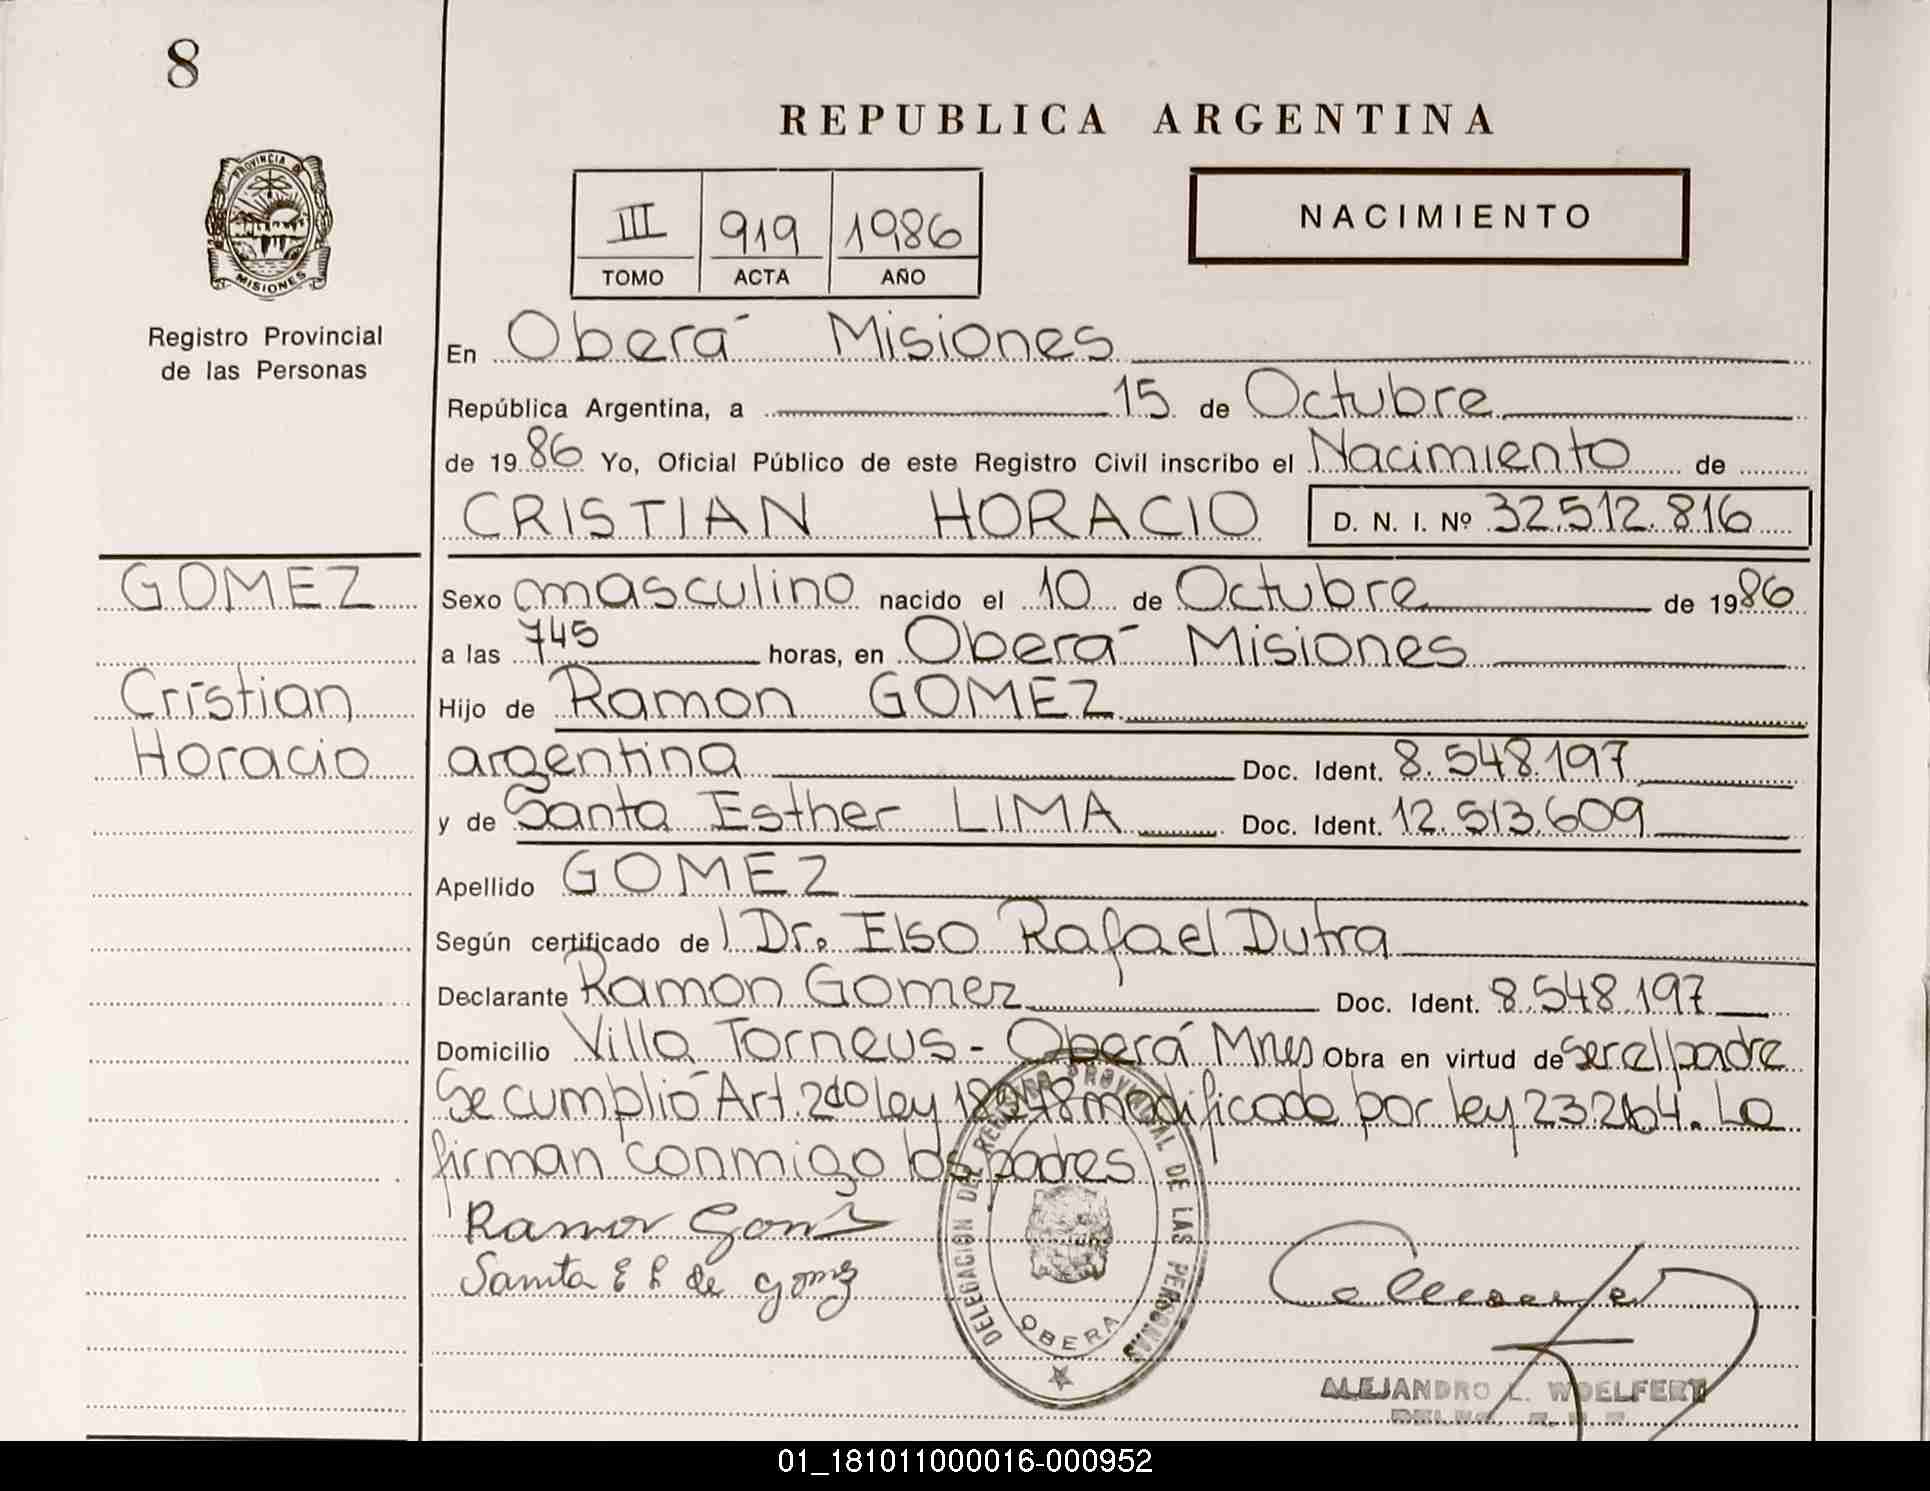 8
REPUBLICA ARGENTINA
PROVINCIA DE
MISIONES
III 919 1986
TOMO ACTA AÑO
NACIMIENTO
Registro Provincial
de las Personas
En Oberá Misiones
República Argentina, a 15 de Octubre
de 1986 Yo, Oficial Público de este Registro Civil inscribo el Nacimiento de
CRISTIAN HORACIO D. N. I. Nº 32.512.816
GOMEZ
Cristian
Horacio
Sexo masculino nacido el 10 de Octubre de 1986
a las 745 horas, en Oberá Misiones
Hijo de Ramon GOMEZ
argentina Doc. Ident. 8.548.197
y de Santa Esther LIMA Doc. Ident. 12.513.609
Apellido GOMEZ
Según certificado de Dr. Elso Rafael Dutra
Declarante Ramon Gomez Doc. Ident. 8.548.197
Domicilio Villa Torneus - Oberá Mnes Obra en virtud de ser el padre
Se cumplió Art. 2do ley 18248 modificado por ley 23264. Lo
firman conmigo los padres
Ramon
Santa E L de gomez
DELEGACION DEL REGISTRO PROVINCIAL DE LAS PERSONAS
OBERA
ALEJANDRO L. WOELFERT
01_181011000016-000952